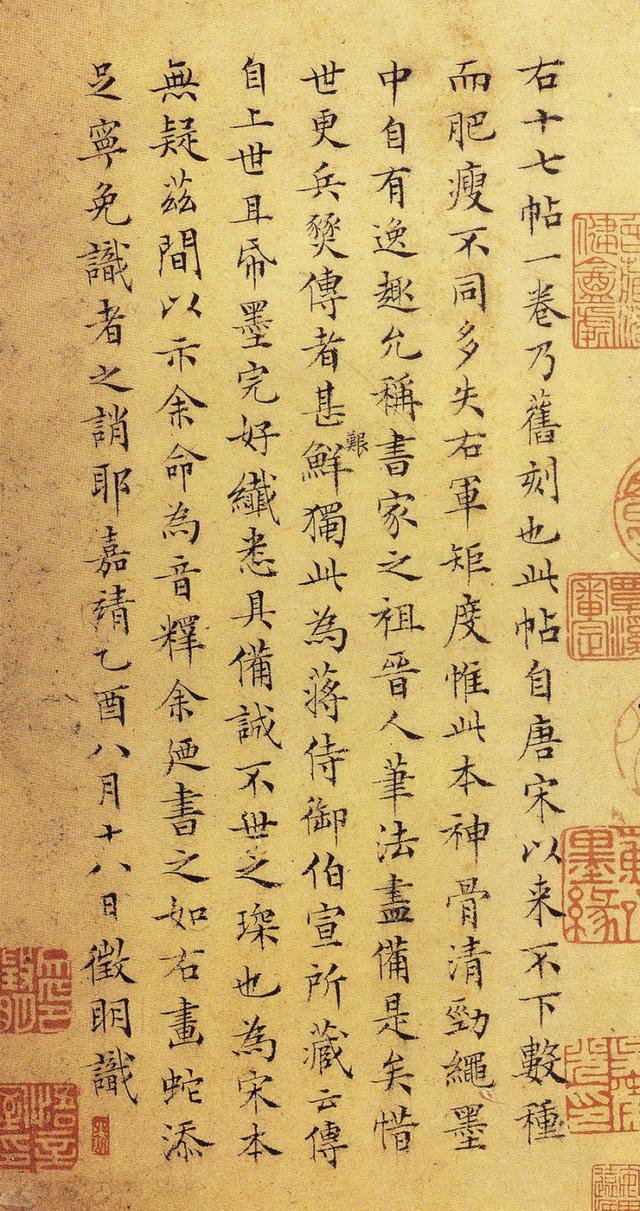 覃溪審定
墨緣
右十七帖一卷乃舊刻也此帖自唐宋以来不下數種
而肥瘦不同多失右軍矩度惟此本神骨清勁繩墨
中自有逸趣允稱書家之祖晉人筆法盡備是矣惜
世更兵燹傳者甚鮮獨此為蔣侍御伯宣所藏云傳
自上世且帋墨完好纖悉具備誠不世之琛也為宋本
無疑茲間以示余命為音釋余廼書之如右畫蛇添
足寧免識者之誚耶嘉靖乙酉八月十八日徵明識
悟言室印